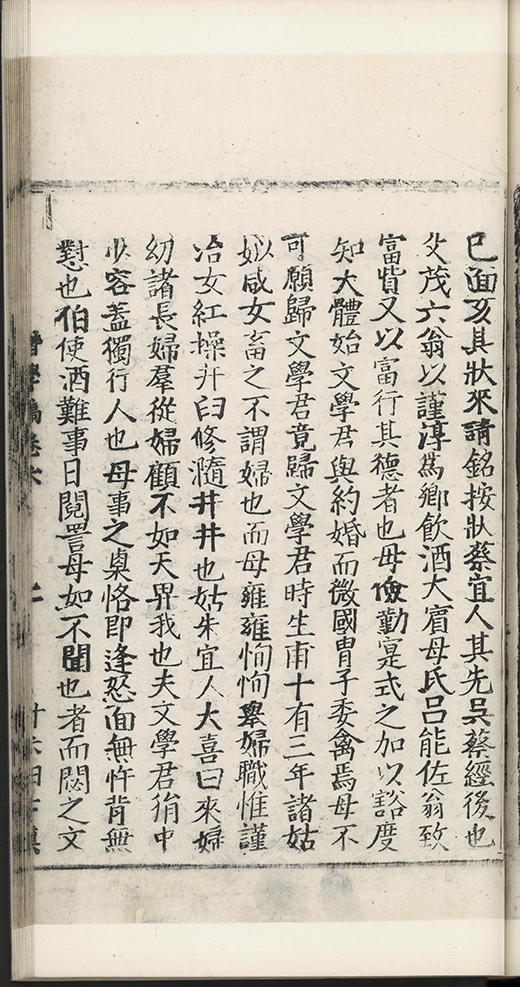 已面亥具狀來請銘按狀蔡宜人其先吳蔡經後也
父茂六翁以謹淳爲鄉飲酒大賓母氏呂能佐翁致
富貲又以富行其德者也母儉勤寔式之加以豁度
知大體始文學君與約婚而微國胄子委禽焉母不
可願歸文學君竟歸文學君時生甫十有三年諸姑
姒咸女畜之不謂婦也而母雍雍恂恂舉婦職惟謹
治女紅操井臼修瀡井井也姑朱宜人大喜曰來婦
幼諸長婦羣從婦顧不如天畀我也夫文學君狷中
少容蓋獨行人也母事之稟恪即逢怒面無忤背無
懟也伯使酒難事日閱詈母如不聞也者而悶之文